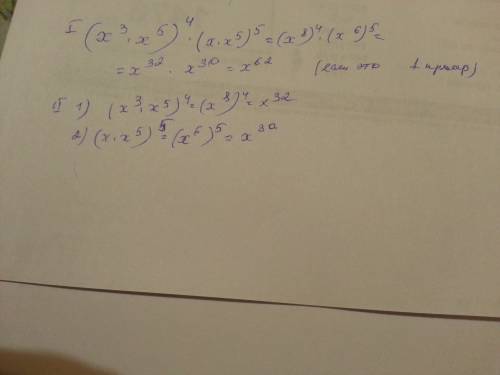 I (x³·x⁵)⁴·(x·x⁵)⁵=(x⁸)⁴·(x⁶)⁵=
=x³²·x³⁰=x⁶² (если это 1 пример)
II 1) (x³·x⁵)⁴=(x⁸)⁴=x³²
2) (x·x⁵)⁵=(x⁶)⁵=x³⁰